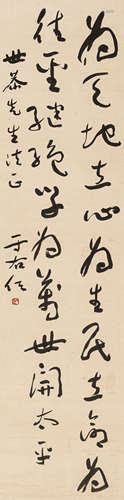 為天地立心為生民立命為
往聖繼絕學為萬世開太平
世 先生法正 于右任